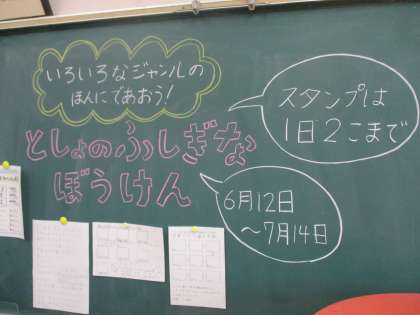 いろいろなジャンルの
ほんにであおう!
としょのふしぎな
ぼうけん
スタンプは
1日2こまで
6月12日
~7月14日